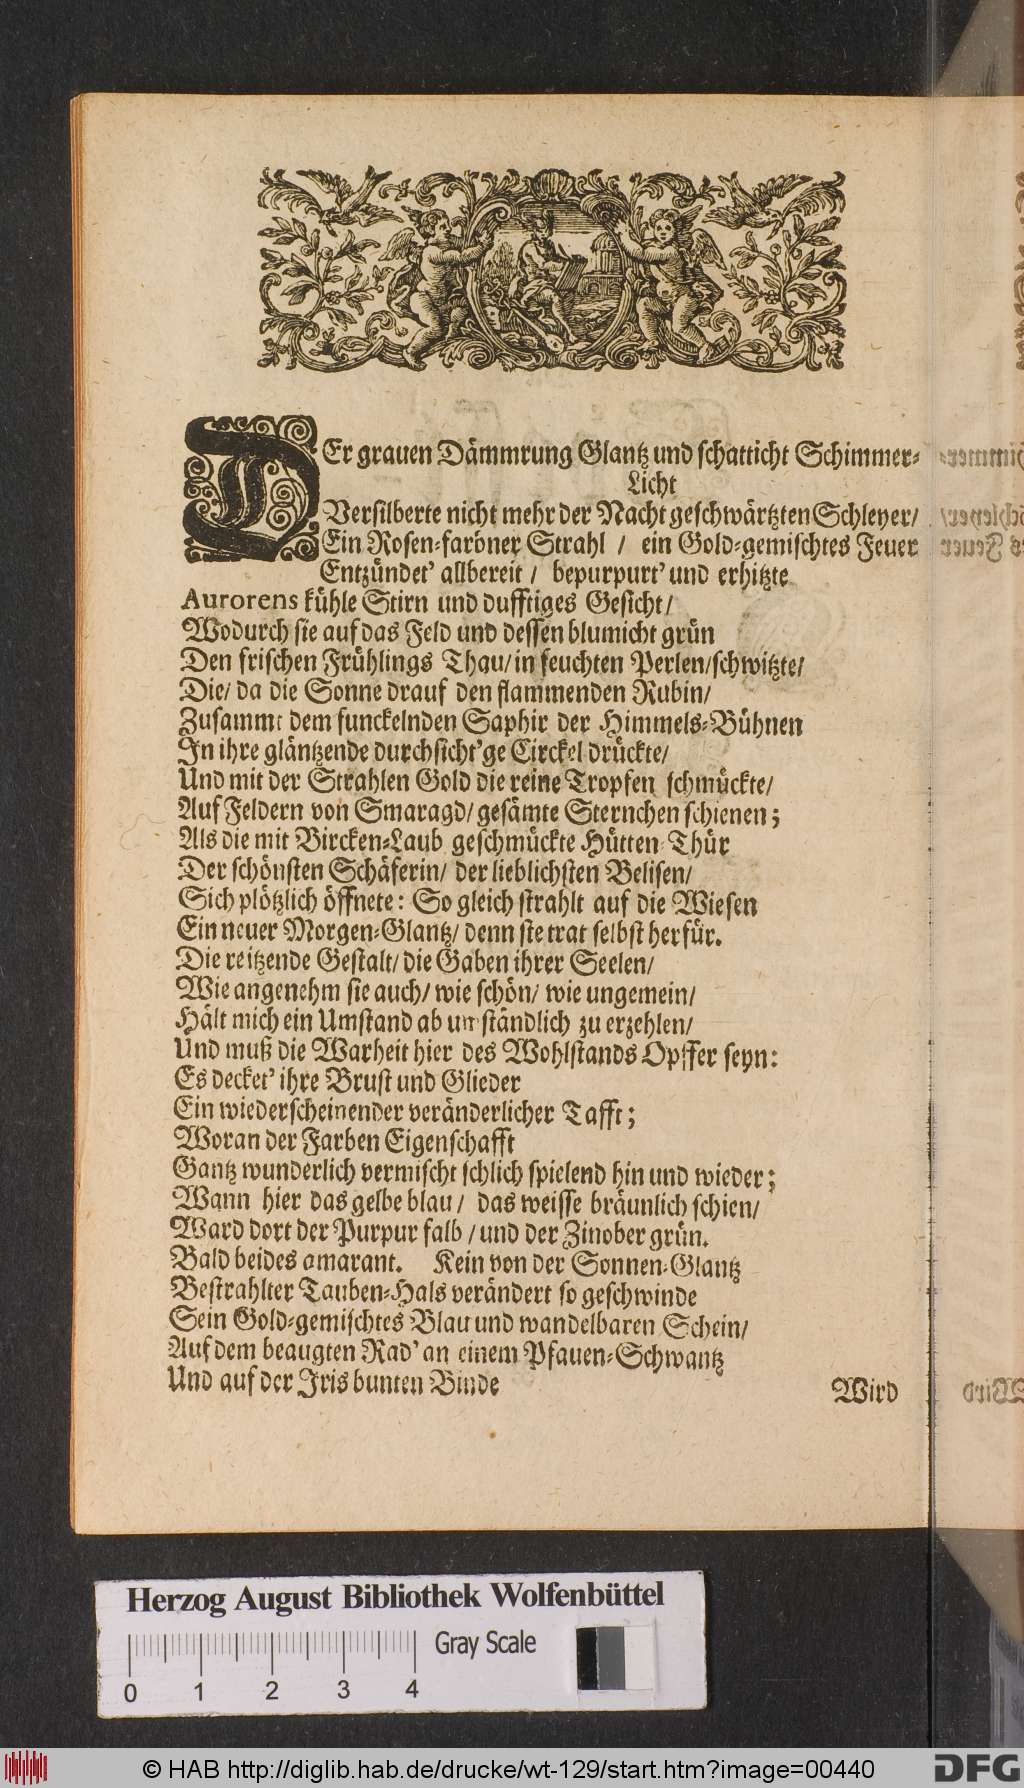 DEr grauen Dämmrung Glantz und schatticht Schimmer-
Licht
Versilberte nicht mehr der Nacht geschwärtzten Schleyer/
Ein Rosen-farbner Strahl / ein Gold-gemischtes Feuer
Entzündet' allbereit / bepurpurt' und erhitzte
Aurorens kühle Stirn und dufftiges Gesicht/
Wodurch sie auf das Feld und dessen blumicht grün
Den frischen Frühlings Thau/ in feuchten Perlen/ schwitzte/
Die/ da die Sonne drauf den flammenden Rubin/
Zusammt dem funckelnden Saphir der Himmels-Bühnen
In ihre gläntzende durchsicht'ge Circkel drückte/
Und mit der Strahlen Gold die reine Tropfen schmückte/
Auf Feldern von Smaragd/ gesämte Sternchen schienen;
Als die mit Bircken-Laub geschmückte Hütten-Thür
Der schönsten Schäferin/ der lieblichsten Belisen/
Sich plötzlich öffnete: So gleich strahlt auf die Wiesen
Ein neuer Morgen-Glantz/ denn sie trat selbst herfür.
Die reitzende Gestalt/ die Gaben ihrer Seelen/
Wie angenehm sie auch/ wie schön/ wie ungemein/
Hält mich ein Umstand ab umständlich zu erzehlen/
Und muß die Warheit hier des Wohlstands Opffer seyn:
Es decket' ihre Brust und Glieder
Ein wiederscheinender veränderlicher Tafft;
Woran der Farben Eigenschafft
Gantz wunderlich vermischt schlich spielend hin und wieder;
Wann hier das gelbe blau/ das weisse bräunlich schien/
Ward dort der Purpur falb / und der Zinober grün.
Bald beides amarant. Kein von der Sonnen-Glantz
Bestrahlter Tauben-Hals verändert so geschwinde
Sein Gold-gemischtes Blau und wandelbaren Schein/
Auf dem beaugten Rad' an einem Pfauen-Schwantz
Und auf der Iris bunten Binde
Wird
Herzog August Bibliothek Wolfenbüttel
Gray Scale
0 1 2 3 4
© HAB http://diglib.hab.de/drucke/wt-129/start.htm?image=00440
DFG